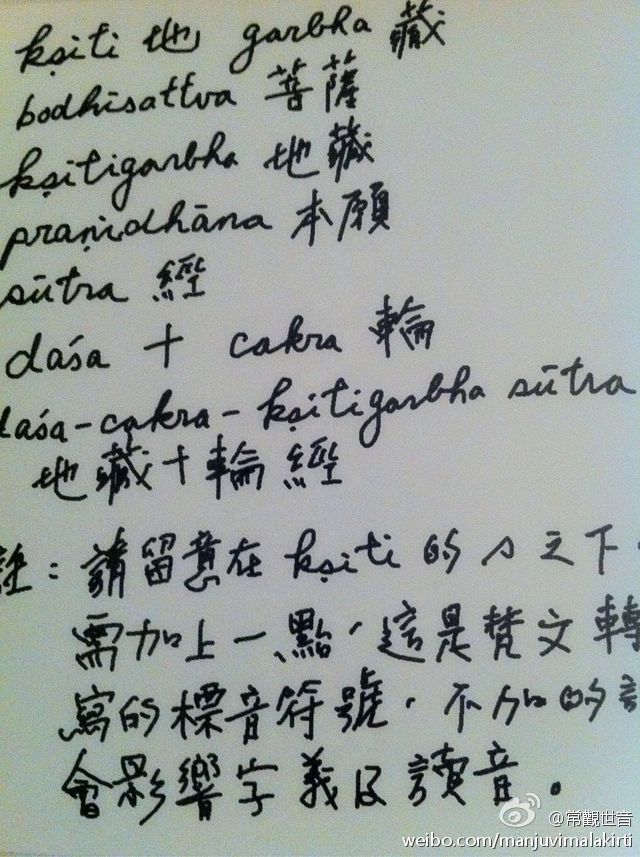 kṣiti 地 garbha 藏
bodhisattva 菩薩
kṣitigarbha 地藏
praṇidhāna 本願
sūtra 經
daśa 十 cakra 輪
daśa-cakra-kṣitigarbha sūtra
地藏十輪經
註：請留意在 kṣiti 的 s 之下，
需加上一點，這是梵文轉
寫的標音符號，不加的話
會影響字義及讀音。
@常觀世音
weibo.com/manjuvimalakirti